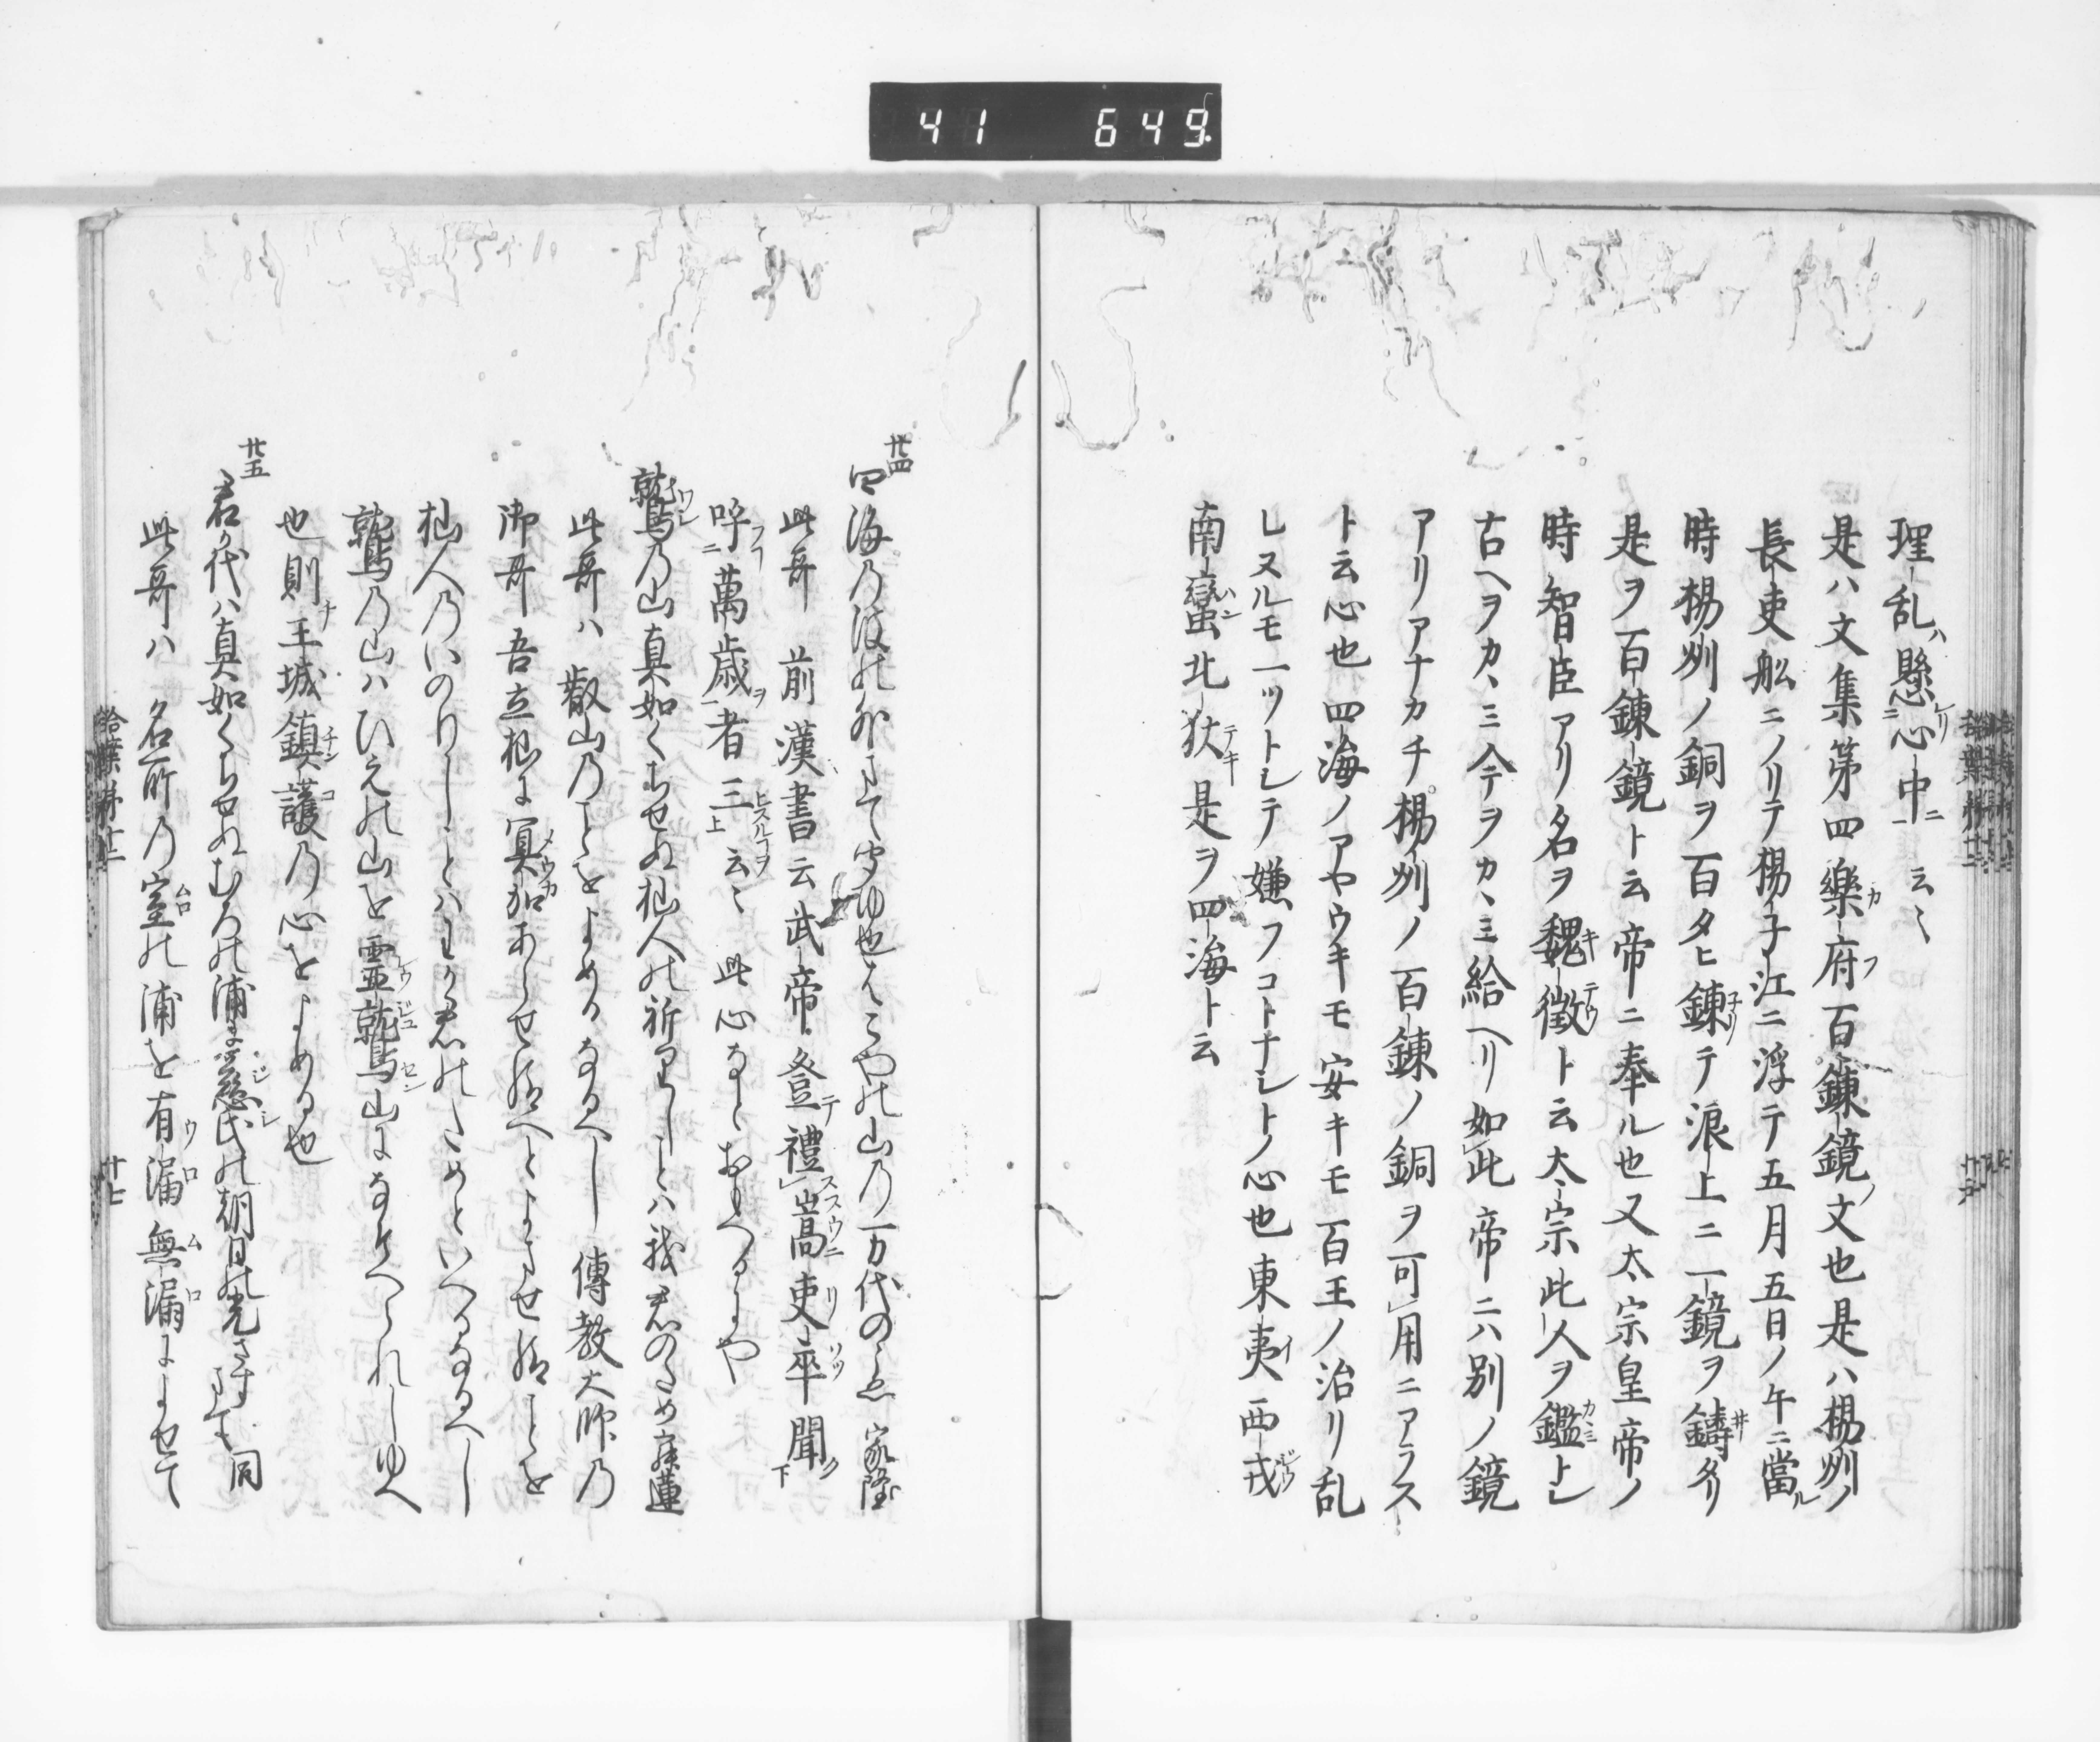 41 649
理乱ハ懸ニ心中ニ 云〻
是ハ文集第四樂府百錬鏡ノ文也是ハ楊州ノ
長吏舩ニノリテ楊子江ニ浮テ五月五日ノ午ニ當ル
時楊州ノ銅ヲ百タヒ錬テ浪上ニ一鏡ヲ鋳タリ
是ヲ百錬鏡ト云帝ニ奉ル也又太宗皇帝ノ
時智臣アリ名ヲ魏徴ト云太宗此人ヲ鑑トシ
古ヘヲカヽミ今ヲカヽミ給ヘリ如此帝ニハ別ノ鏡
アリアナカチ楊州ノ百錬ノ銅ヲ可用ニアラス
ト云心也四海ノアヤウキモ安キモ百王ノ治リ乱
レヌルモ一ツトシテ嫌フコトナシトノ心也東夷西戎
南蠻北狄是ヲ四海ト云
廿四
四海乃浪の外まて聞ゆ也はこやの山乃万代のこゑ 家隆
此哥 前漢書云武帝登テ禮嵩吏卒聞ク
呼ニ萬歳ヲ者三 云〻 此心なとおもへるにや
鷲乃山真如くちせぬ杣人の祈りしことハ我君のため 寂蓮
此哥ハ叡山乃ことをよめるなるへし 傳教大師乃
御哥吾立杣に冥加あらせ給へとよませ給ことを
杣人乃いのりしことハわか君のためといへるなるへし
鷲乃山ハひえの山を霊鷲山になそへられしゆへ
也則王城鎮護乃心をよめる也
廿五
君か代ハ真如くちせぬむろの浦に慈氏の朝日の光さすまて 同
此哥ハ名所乃室の浦を有漏無漏によせて
拾葉第十二 十七